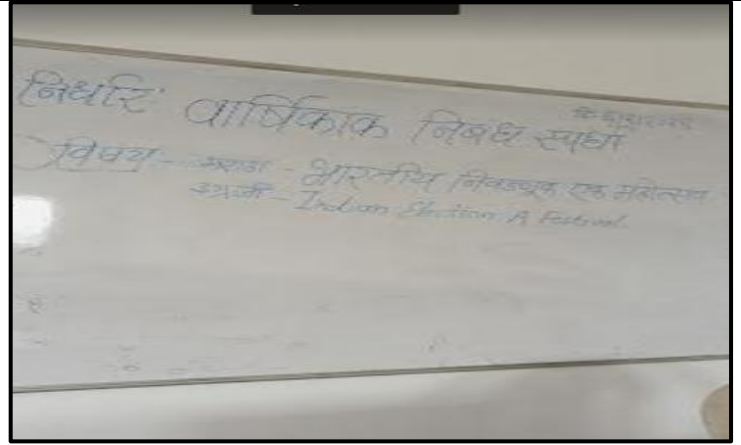 निर्धार वार्षिकांक निबंध स्पर्धा
विषय - मराठी - भारतीय निवडणूक एक महोत्सव
इंग्रजी - Indian Election A Festival.